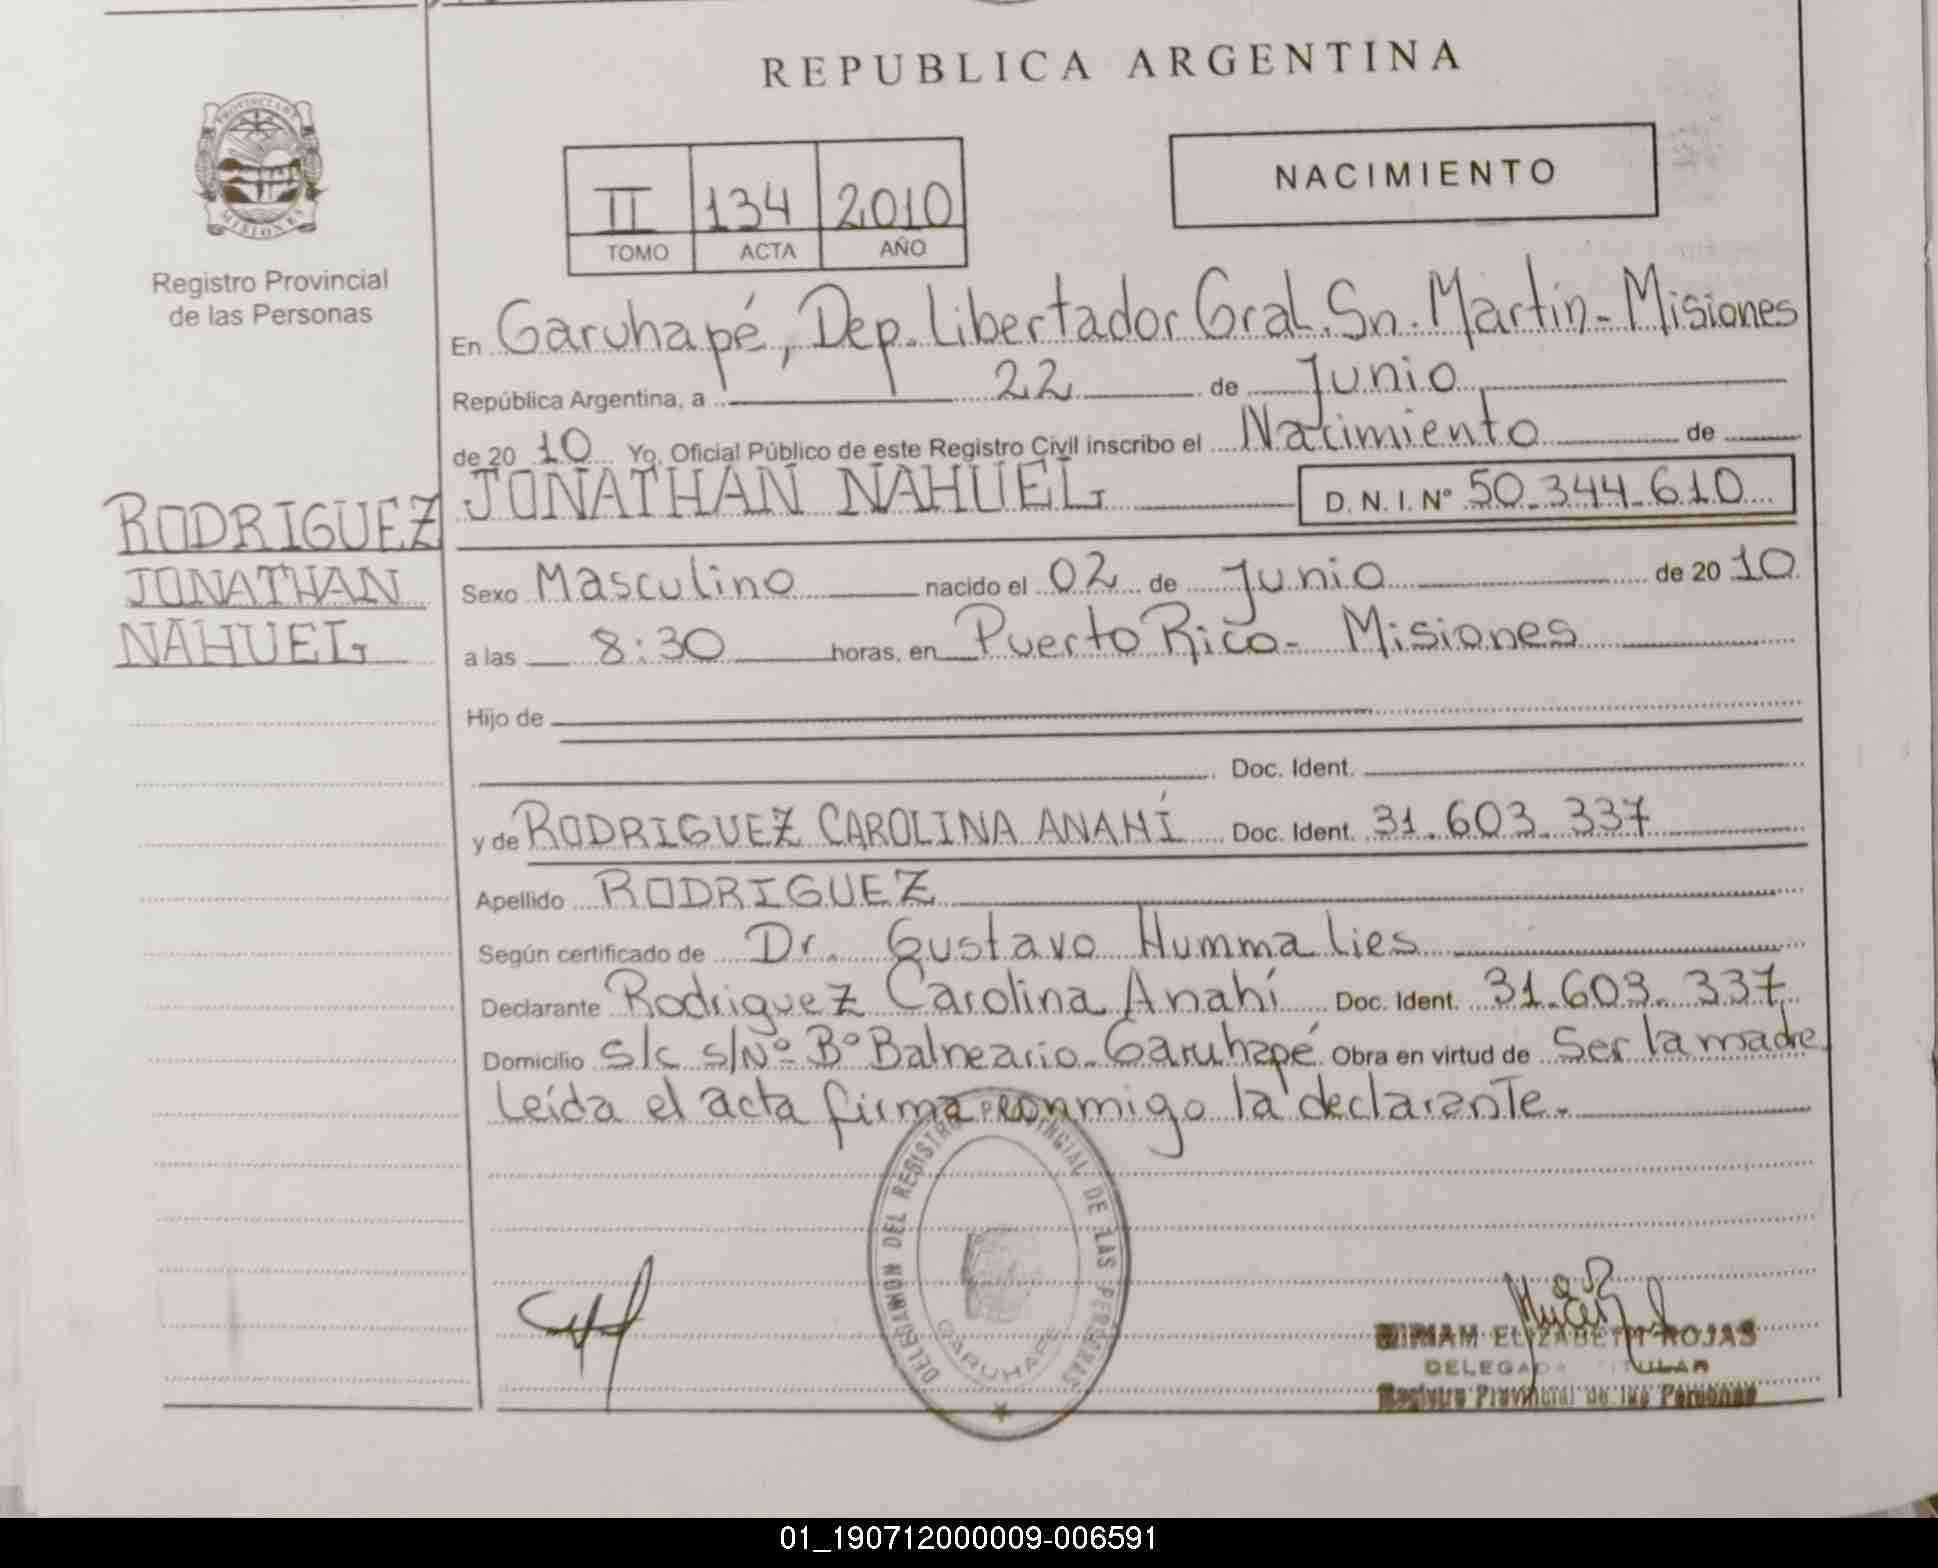 REPUBLICA ARGENTINA
PROVINCIA DE MISIONES
Registro Provincial
de las Personas
II 134 2010
TOMO ACTA AÑO
NACIMIENTO
En Garuhapé, Dep. Libertador Gral. Sn. Martín - Misiones
República Argentina, a 22 de Junio
de 2010 Yo, Oficial Público de este Registro Civil inscribo el Nacimiento de
JONATHAN NAHUEL D.N.I. Nº 50.344.610
RODRIGUEZ
JONATHAN
NAHUEL
Sexo Masculino nacido el 02 de Junio de 2010
a las 8:30 horas, en Puerto Rico - Misiones
Hijo de
Doc. Ident.
y de RODRIGUEZ CAROLINA ANAHÍ Doc. Ident. 31.603.337
Apellido RODRIGUEZ
Según certificado de Dr. Gustavo Hummalies
Declarante Rodriguez Carolina Anahí Doc. Ident. 31.603.337
Domicilio S/C S/Nº Bº Balneario - Garuhapé Obra en virtud de Ser la madre
Leída el acta firma conmigo la declarante.
DELEGACION DEL REGISTRO PROVINCIAL DE LAS PERSONAS
GARUHAPE
MIRIAM ELIZABETH ROJAS
DELEGADA TITULAR
Registro Provincial de las Personas
01_190712000009-006591